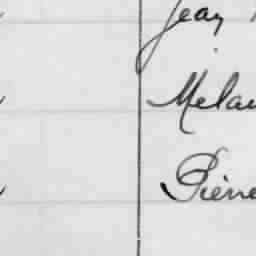 Jean
Melan
Pierre